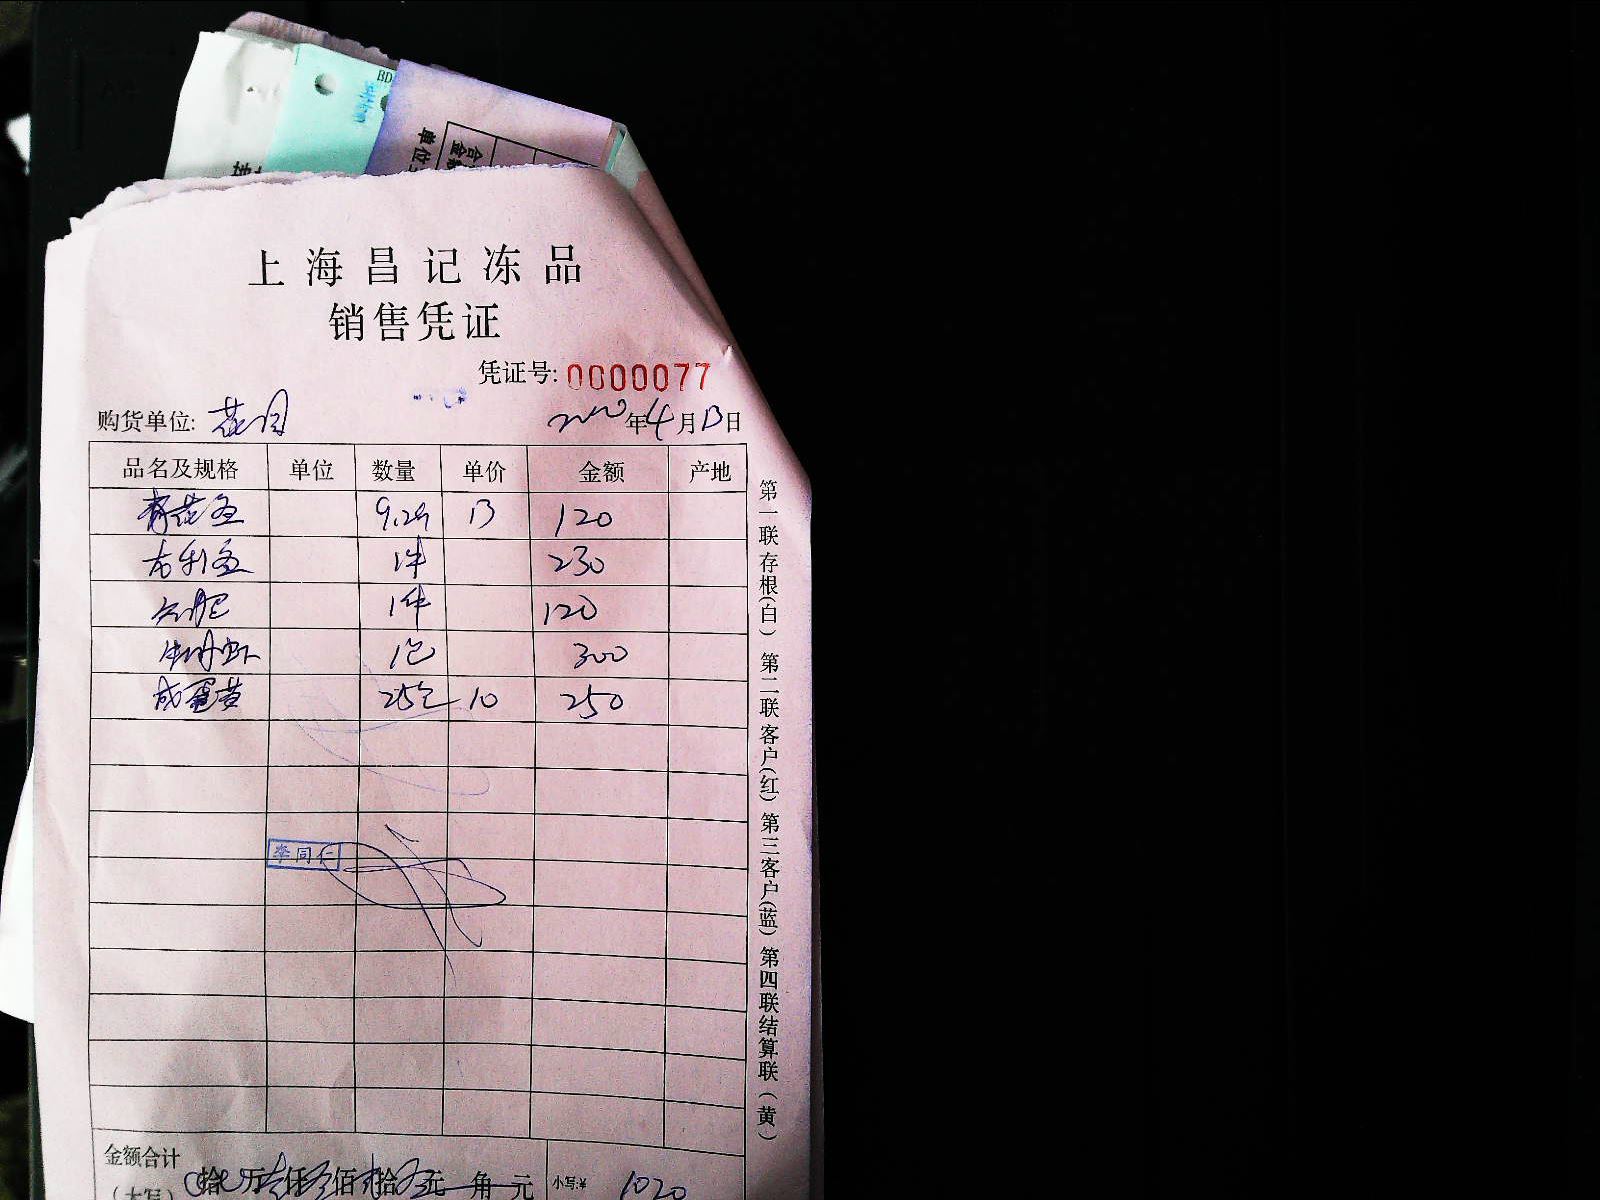 BD
单位
合
金额
上海昌记冻品
销售凭证
凭证号: 0000077
购货单位: 花月 2020年4月13日
品名及规格 单位 数量 单价 金额 产地
青花鱼 9.2斤 13 120
希利鱼 1件 230
1件 120
牡丹虾 1包 300
咸蛋黄 25包 10 250
李同仁
金额合计
(大写) 拾 万 仟 佰 拾 元 角 元 小写:¥ 1020
第一联存根(白) 第二联客户(红) 第三客户(蓝) 第四联结算联(黄)